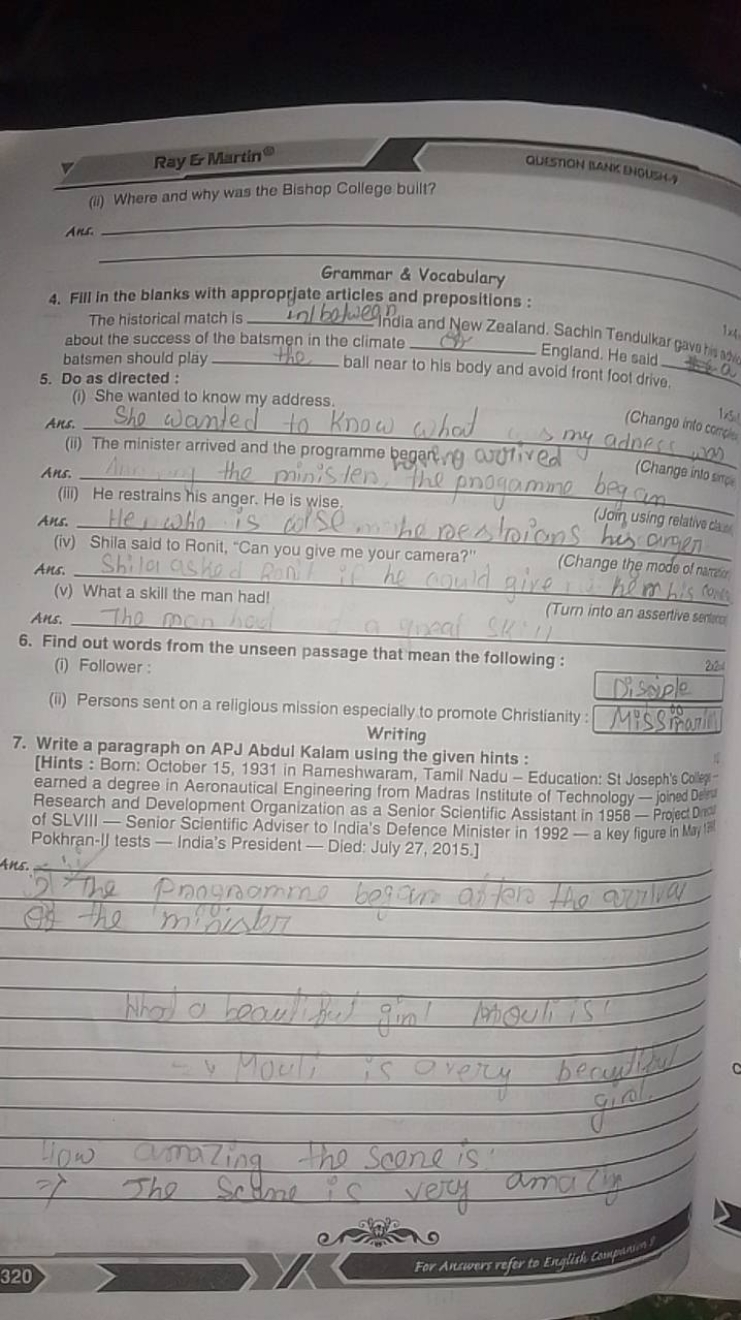 Ray & Martin®
QUESTION BANK ENGLISH-9
(ii) Where and why was the Bishop College built?
Ans.
Grammar & Vocabulary
4. Fill in the blanks with appropriate articles and prepositions :
The historical match is in/between India and New Zealand. Sachin Tendulkar gave his
about the success of the batsmen in the climate of England. He said a
batsmen should play the ball near to his body and avoid front foot drive.
5. Do as directed :
(i) She wanted to know my address. (Change into
Ans. She wanted to know what my adress was
(ii) The minister arrived and the programme began. (Change into
Ans. the minister, the progamme began
(iii) He restrains his anger. He is wise. (Join using relative
Ans. He, who is wise
(iv) Shila said to Ronit, "Can you give me your camera?" (Change the mode of
Ans. Shila asked Ronit if he could give his
(v) What a skill the man had! (Turn into an assertive
Ans. The man had a great skill
6. Find out words from the unseen passage that mean the following :
(i) Follower : Disciple
(ii) Persons sent on a religious mission especially to promote Christianity :
Writing
7. Write a paragraph on APJ Abdul Kalam using the given hints :
[Hints : Born: October 15, 1931 in Rameshwaram, Tamil Nadu – Education: St Joseph's
earned a degree in Aeronautical Engineering from Madras Institute of Technology — joined
Research and Development Organization as a Senior Scientific Assistant in 1958 — Project
of SLVIII — Senior Scientific Adviser to India's Defence Minister in 1992 — a key figure in May
Pokhran-II tests — India's President — Died: July 27, 2015.]
Ans.
the programme began after the arrival
of the minister
What a beautiful girl Mouli is!
Mouli is a very beautiful
girl.
How amazing the scene is!
⇒ The scene is very
320
For Answers refer to English Companion 9